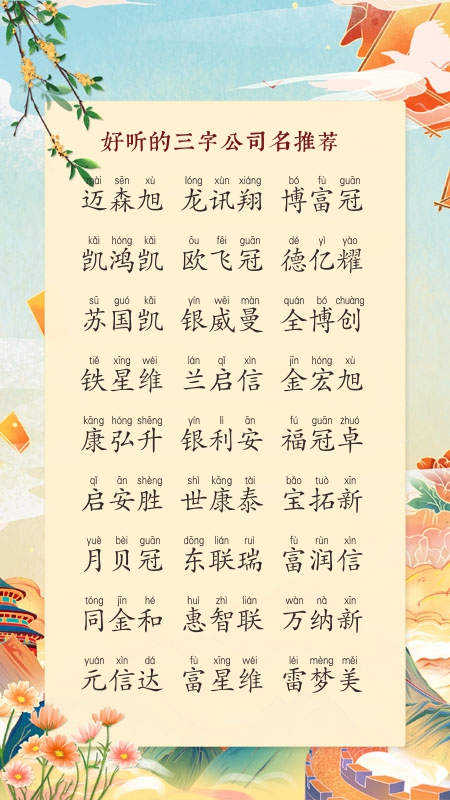 好听的三字公司名推荐
mài sēn xù lóng xùn xiáng bó fù guān
迈森旭 龙讯翔 博富冠
kǎi hóng kǎi ōu fēi guān dé yì yào
凯鸿凯 欧飞冠 德亿耀
sū guó kǎi yín wēi màn quán bó chuàng
苏国凯 银威曼 全博创
tiě xīng wéi lán qǐ xìn jīn hóng xù
铁星维 兰启信 金宏旭
kāng hóng shēng yín lì ān fú guān zhuó
康弘升 银利安 福冠卓
qǐ ān shèng shì kāng tài bǎo tuò xīn
启安胜 世康泰 宝拓新
yuè bèi guān dōng lián ruì fù rùn xìn
月贝冠 东联瑞 富润信
tóng jīn hé huì zhì lián wàn nà xīn
同金和 惠智联 万纳新
yuán xìn dá fù xīng wéi léi mèng měi
元信达 富星维 雷梦美